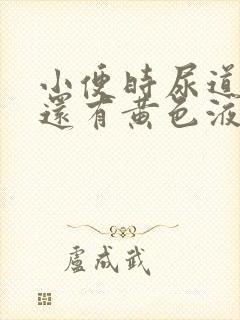 小便時尿道
還有黃色液
盧成武